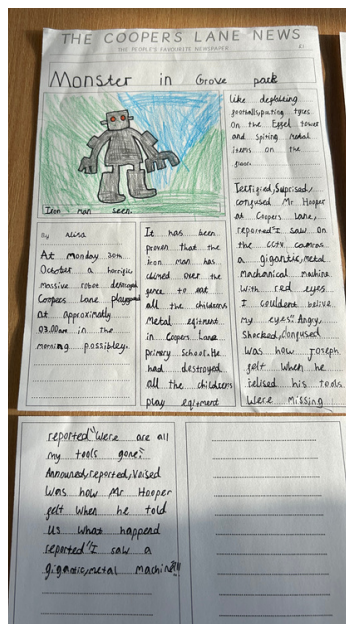 THE COOPERS LANE NEWS
THE PEOPLE'S FAVOURITE NEWSPAPER
£1
Monster in Grove park
Iron man seen.
By Alisa
At Monday 30th
October a horrific
Massive robot destroyed
Coopers Lane playground
at approximatly
03:00am in the
morning possibley.
It has been
proven that the
iron man has
climed over the
gence to eat
all the childrens
Metal eqitment
in Coopers Lane
primary School. He
had destroyed
all the childrens
play eqitment
like deflateing
footballs, puting tyres
On the Effel tower
and spiting Metal
items on the
floor.
Terrified, Suprised,
confused Mr Hooper
at Coopers lane,
reported "I saw on
the CCTV camras
a gigantic, metal
Mechanical machine
With red eyes
I couldent belive
my eyes". Angry,
Shocked, confused
Was how Joseph
felt When he
relised his tools
Were Missing
reported "Were are all
my tools gone".
Announed, reported, Voised
Was how Mr Hooper
felt when he told
us what happend
reported "I saw a
gigantic, metal machine"!!!